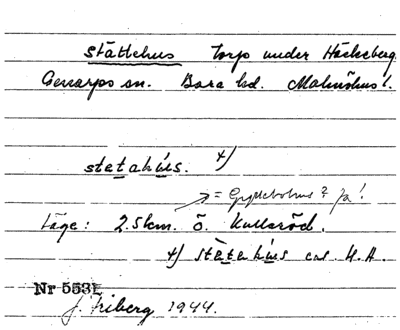 Stättehus torp under Häckeberga
Genarps sn. Bara hd. Malmöhus l.
stetahús. +)
= Gryttebohus? Ja!
Läge: 2.5 km. Ö. Kullaröd.
+) stètahús enl. H.A.
Nr 5531
J. Friberg 1944.